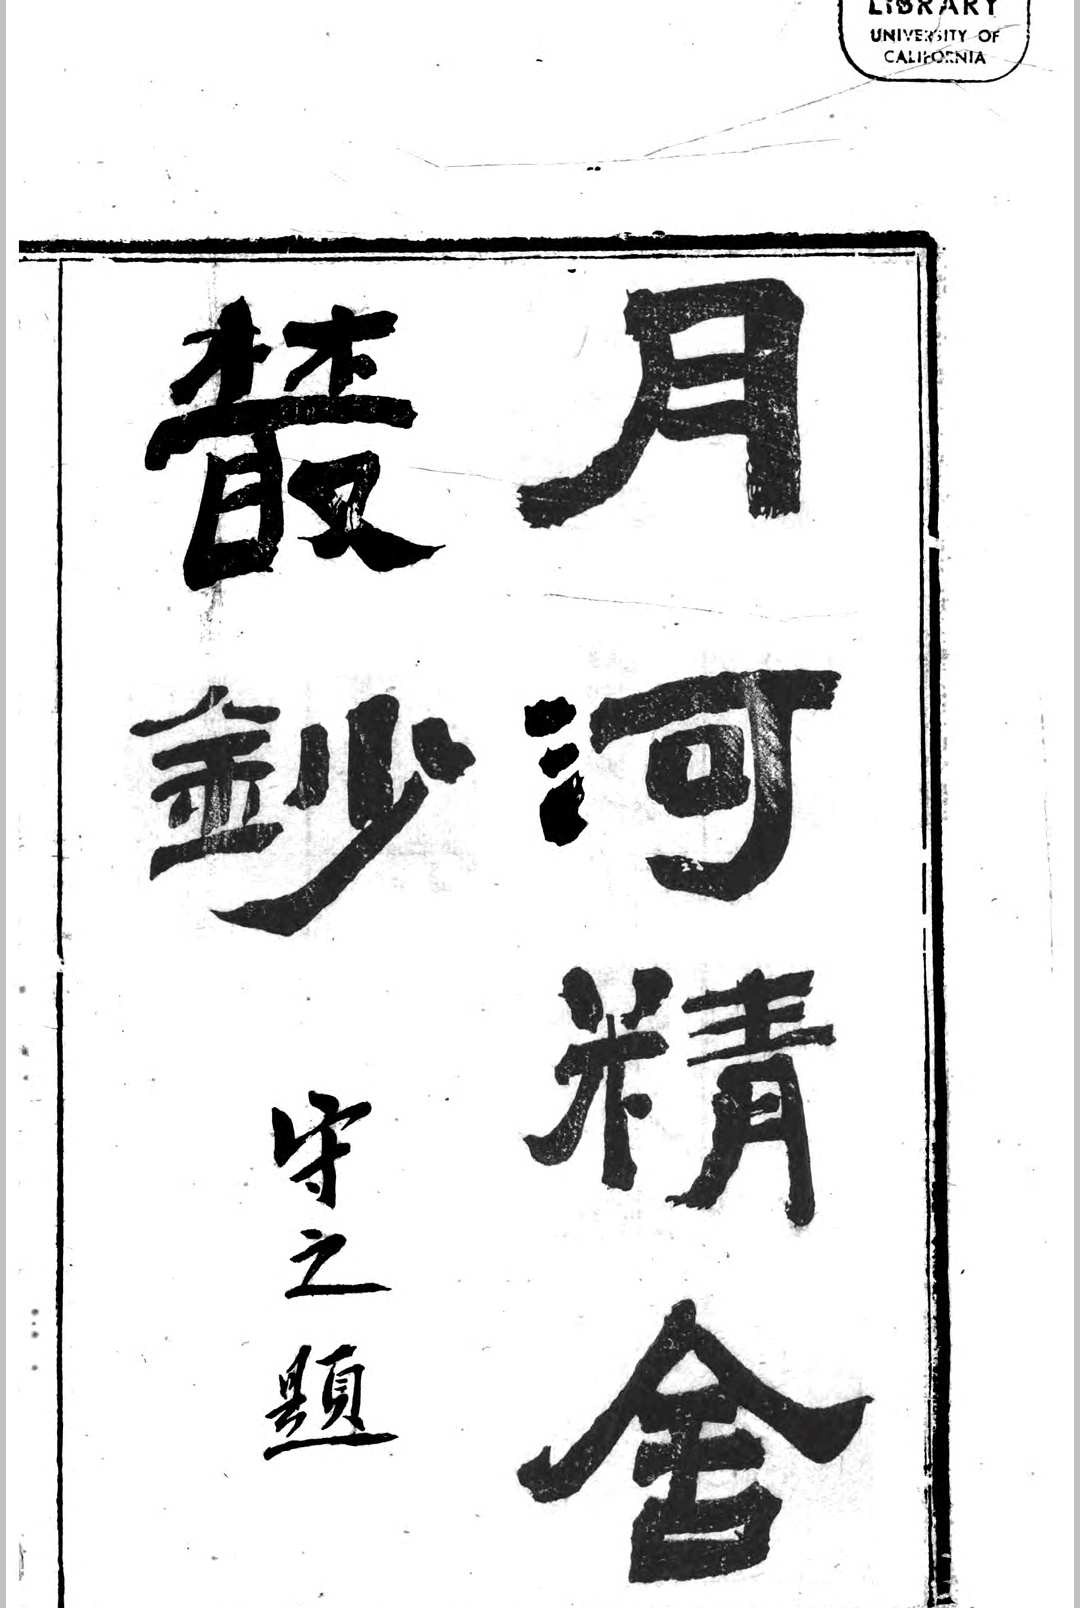 LIBRARY
UNIVERSITY OF
CALIFORNIA
月河精舍
叢鈔
守之題